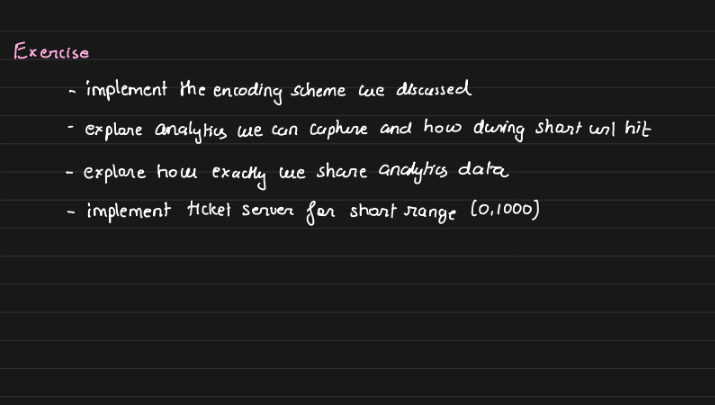 Exercise
- implement the encoding scheme we discussed
- explore analytics we can capture and how during short url hit
- explore how exactly we share analytics data
- implement ticket server for short range [0,1000]